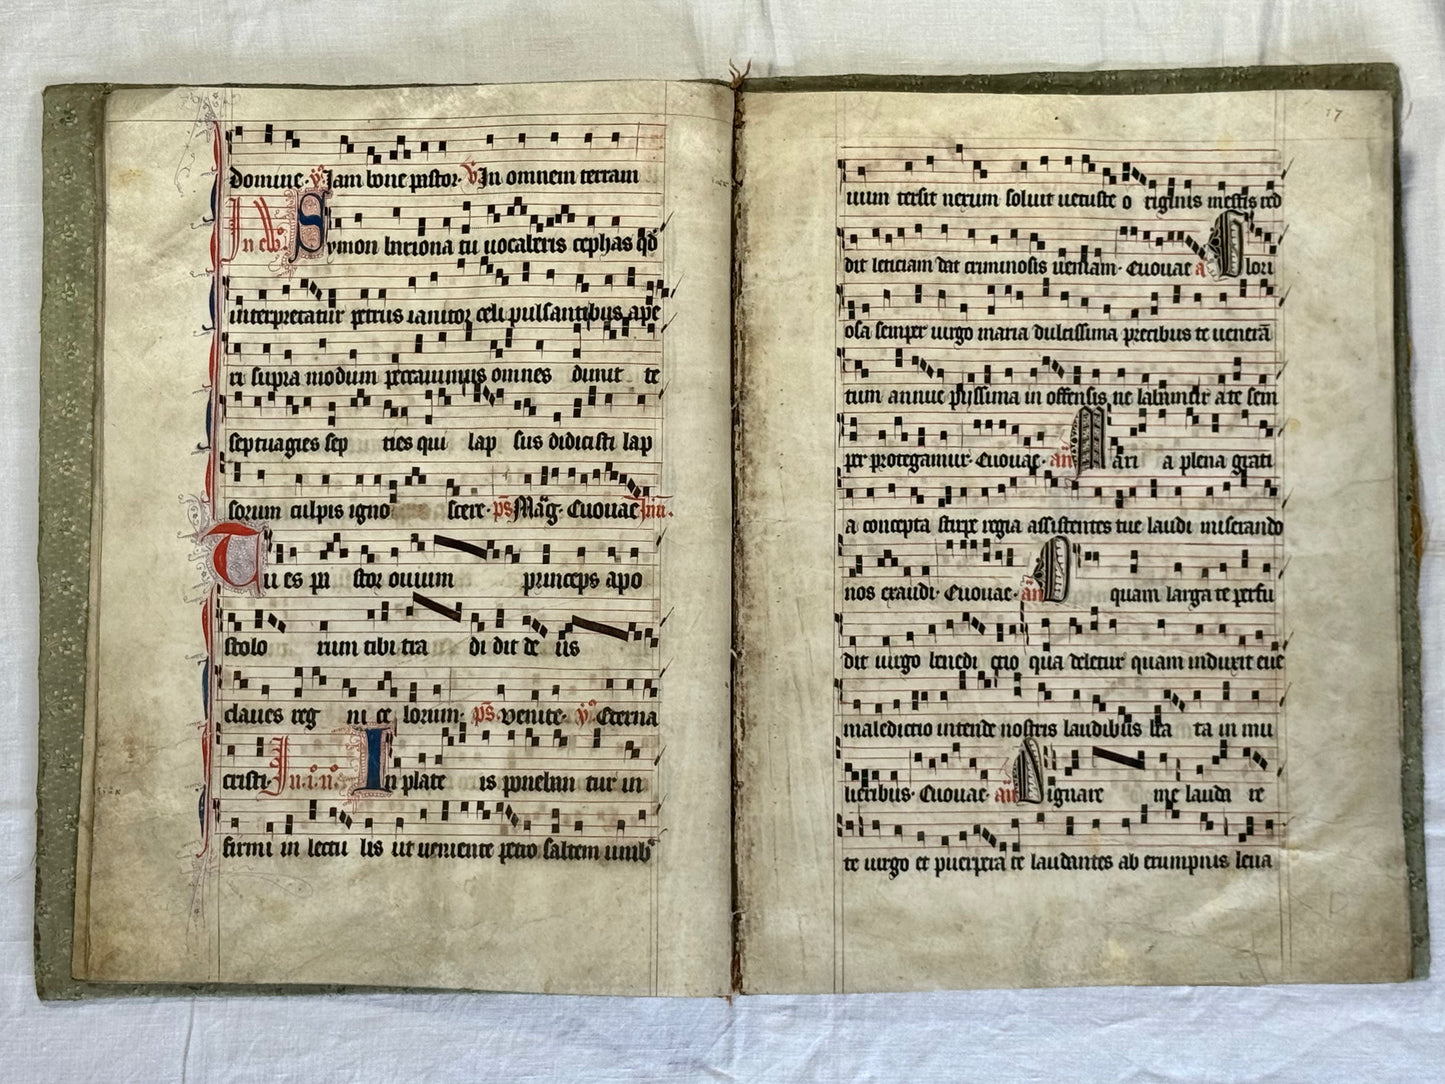 domine · v̄s Iam bone pastor · v̄ In omnem terram
In ev̄o. Symon bariona tu vocaberis cephas qd̄
interpretatur petrus ianitor celi pulsantibus ape
ri supra modum peccavimus omnes dimit te
septuagies sep ties qui lap sus didicisti lap
sorum culpis igno scere · p̄s Mag̃ · Euouae Inũ.
Tu es pa stor ovium princeps apo
stolo rum tibi tra di dit de us
claves reg ni ce lorum · p̄s · venite · v̄ · Eterna
cristi · In · i · n° · In plate is ponebãtur in
firmi in lectu lis ut veniente petro saltem umb
17
uum tersit nexum soluit vetuste o riginis mestis red
dit leticiam dat criminosis veniam · Euouae a Glori
osa semper virgo maria dulcissima precibus te venerã
tum annue pijssima in offensis ne labamur a te sem
per protegamur · Euouae · añ Mari a plena grati
a concepta stirpe regia assistentes tue laudi miserando
nos exaudi · Euouae · añ O quam larga te perfu
dit virgo benedi ctio qua deletur quam induxit eve
maledictio intende nostris laudibus bea ta in mu
lieribus · Euouae · añ Dignare me lauda re
te virgo et puerpera te laudantes ab erumpnis leva